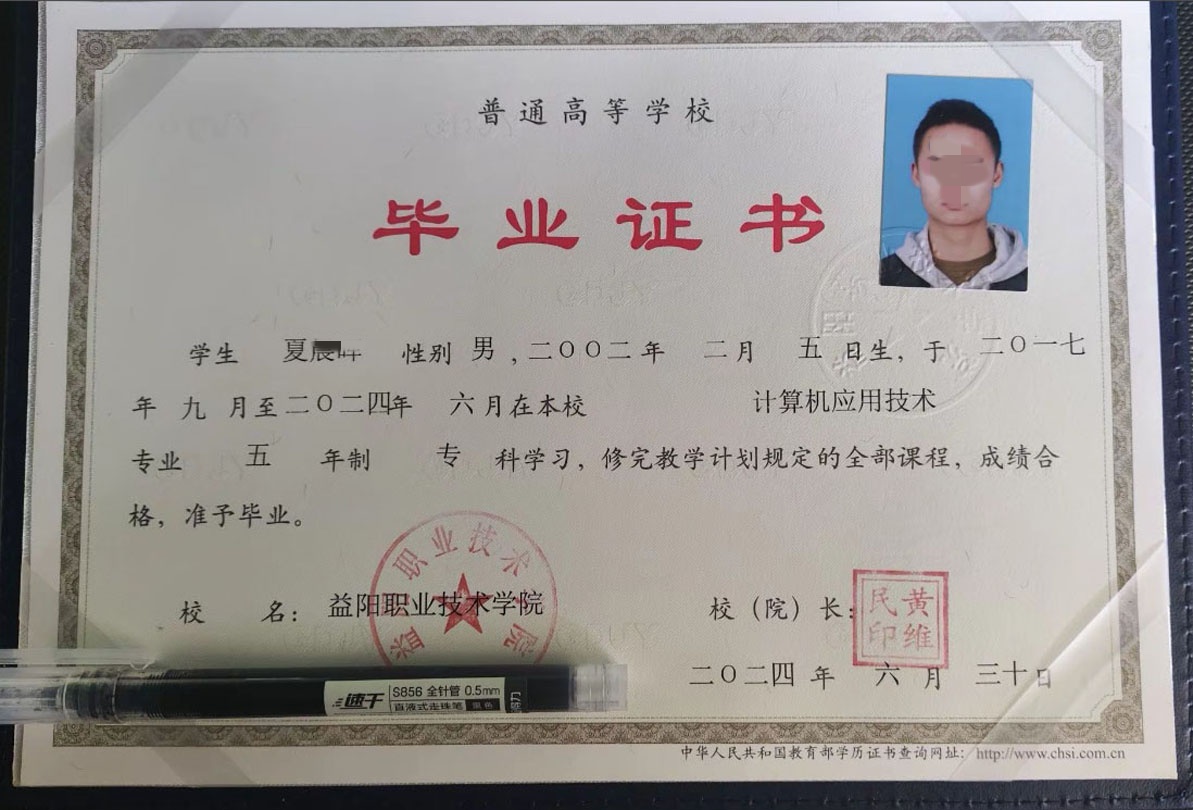 普通高等学校
毕业证书
学生 夏 性别 男，二〇〇二年 二月 五日生，于 二〇一七
年 九 月至二〇二四年 六月在本校 计算机应用技术
专业 五 年制 专 科学习，修完教学计划规定的全部课程，成绩合
格，准予毕业。
职业技术 院
益
校 名：益阳职业技术学院
校（院）长：
黄维民印
二〇二四 年 六 月 三十日
速干
S856 全针管 0.5mm
直液式走珠笔 黑色
中华人民共和国教育部学历证书查询网址：http://www.chsi.com.cn